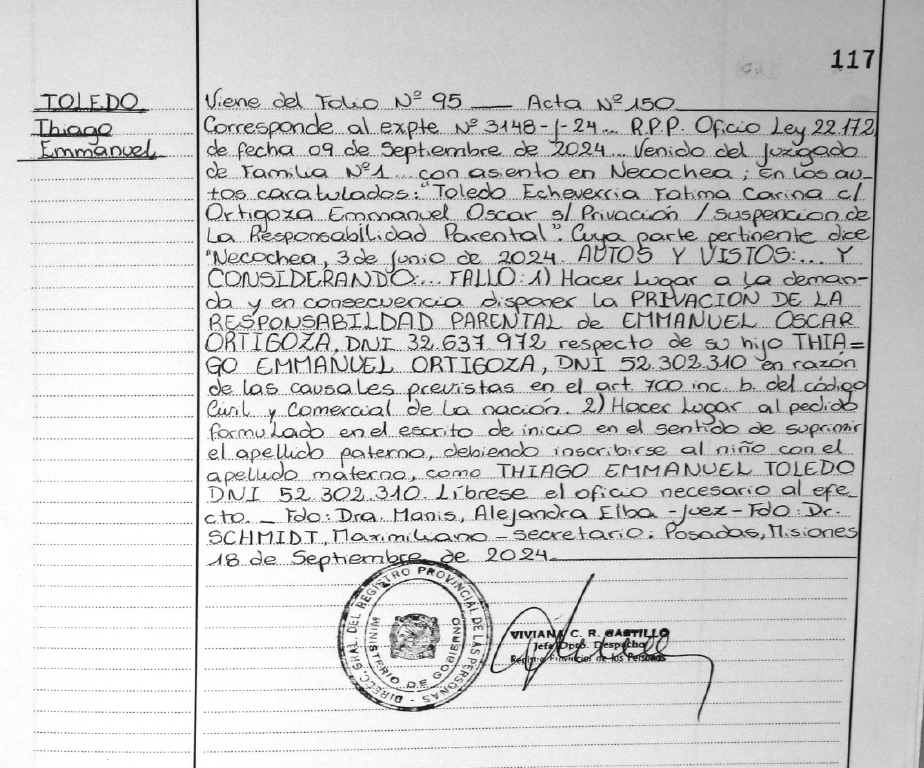 117
TOLEDO
Thiago
Emmanuel
Viene del Folio Nº 95 __ Acta Nº 150
Corresponde al expte Nº 3148-J-24... R.P.P. Oficio Ley 22.172
de fecha 09 de Septiembre de 2024... Venido del Juzgado
de Familia Nº1... con asiento en Necochea; En los au-
tos caratulados: "Toledo Echeverria Fatima Carina c/
Ortigoza Emmanuel Oscar s/ Privación / suspencion de
La Responsabilidad Parental". Cuya parte pertinente dice
"Necochea, 3 de Junio de 2024. AUTOS Y VISTOS:... Y
CONSIDERANDO:... FALLO: 1) Hacer Lugar a la deman-
da y en consecuencia disponer la PRIVACION DE LA
RESPONSABILDAD PARENTAL de EMMANUEL OSCAR
ORTIGOZA, DNI 32.637.972 respecto de su hijo THIA=
GO EMMANUEL ORTIGOZA, DNI 52.302.310 en razón
de las causales previstas en el art. 700 inc. b. del código
Civil y Comercial de La nación. 2) Hacer Lugar al pedido
formulado en el escrito de inicio en el sentido de suprimir
el apellido paterno, debiendo inscribirse al niño con el
apellido materno, como THIAGO EMMANUEL TOLEDO
DNI 52.302.310. Líbrese el oficio necesario al efe-
cto. _ Fdo: Dra. Manis, Alejandra Elba -Juez- Fdo: Dr.
SCHMIDT, Maximiliano - secretario. Posadas, Misiones
18 de Septiembre de 2024.
DIRECC. GRAL. DEL REGISTRO PROVINCIAL DE LAS PERSONAS -
MINISTERIO DE GOBIERNO
VIVIANA C. R. CASTILLO
Jefe Dpto. Despacho
Registro Provincial de las Personas